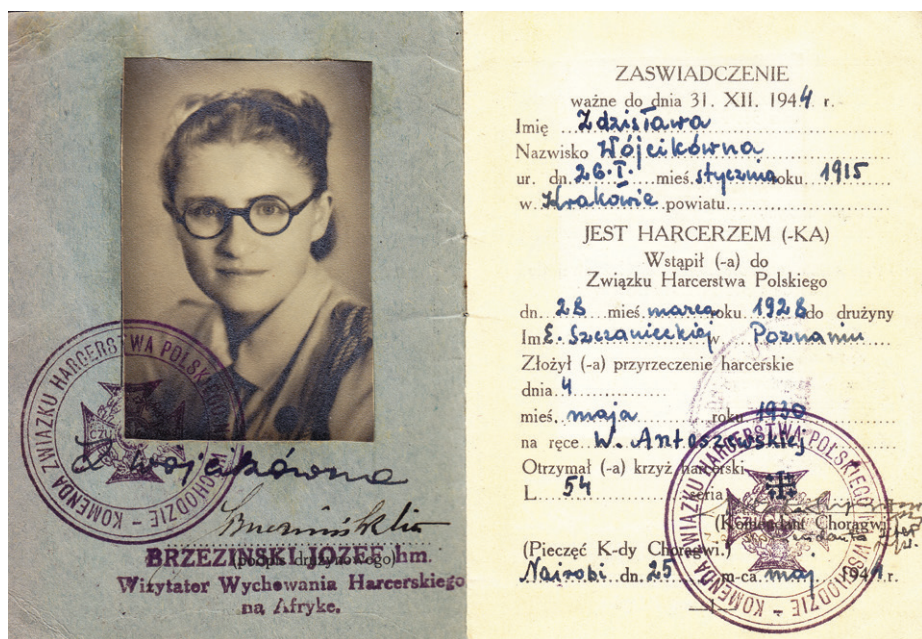 KOMENDA ZWIĄZKU HARCERSTWA POLSKIEGO NA WSCHODZIE
CZU
Z Wójcikówna
BRZEZINSKI JOZEF hm.
(podpis drużynowego)
Wizytator Wychowania Harcerskiego
na Afryke.
ZASWIADCZENIE
ważne do dnia 31. XII. 1944 r.
Imię Zdzisława
Nazwisko Wójcikówna
ur. dn. 26.I. mieś. stycznia roku 1915
w Krakowie powiatu
JEST HARCERZEM (-KA)
Wstąpił (-a) do
Związku Harcerstwa Polskiego
dn. 28 mieś. marca roku 1928 do drużyny
Im. E. Szczanieckiej w. Poznaniu
Złożył (-a) przyrzeczenie harcerskie
dnia 4
mieś. maja roku 1930
na ręce W. Antoszewskiej
Otrzymał (-a) krzyż harcerski
L. 54 seria
(Komendant Chorągwi)
(Pieczęć K-dy Chorągwi.)
Nairobi dn. 25 m-ca maj 1944 r.
KOMENDA ZWIĄZKU HARCERSTWA POLSKIEGO NA WSCHODZIE